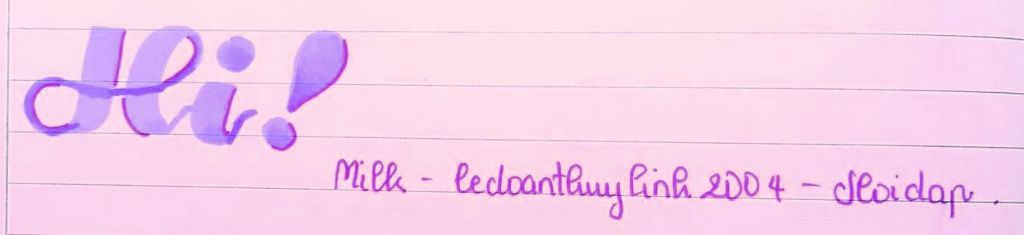 Hi!
Milk - ledoanthuylinh2004 - Hoidap.